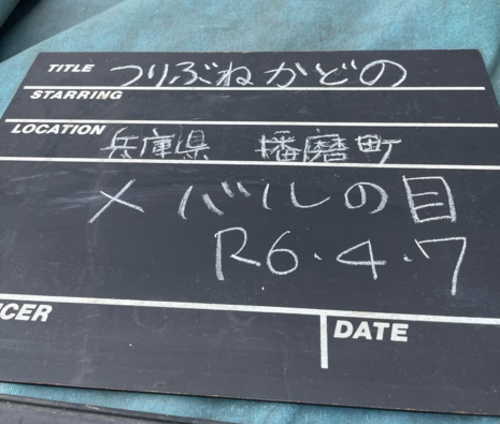 TITLE つりぶねかどの
STARRING
LOCATION 兵庫県 播磨町
メバルの目
R6.4.7
CER
DATE